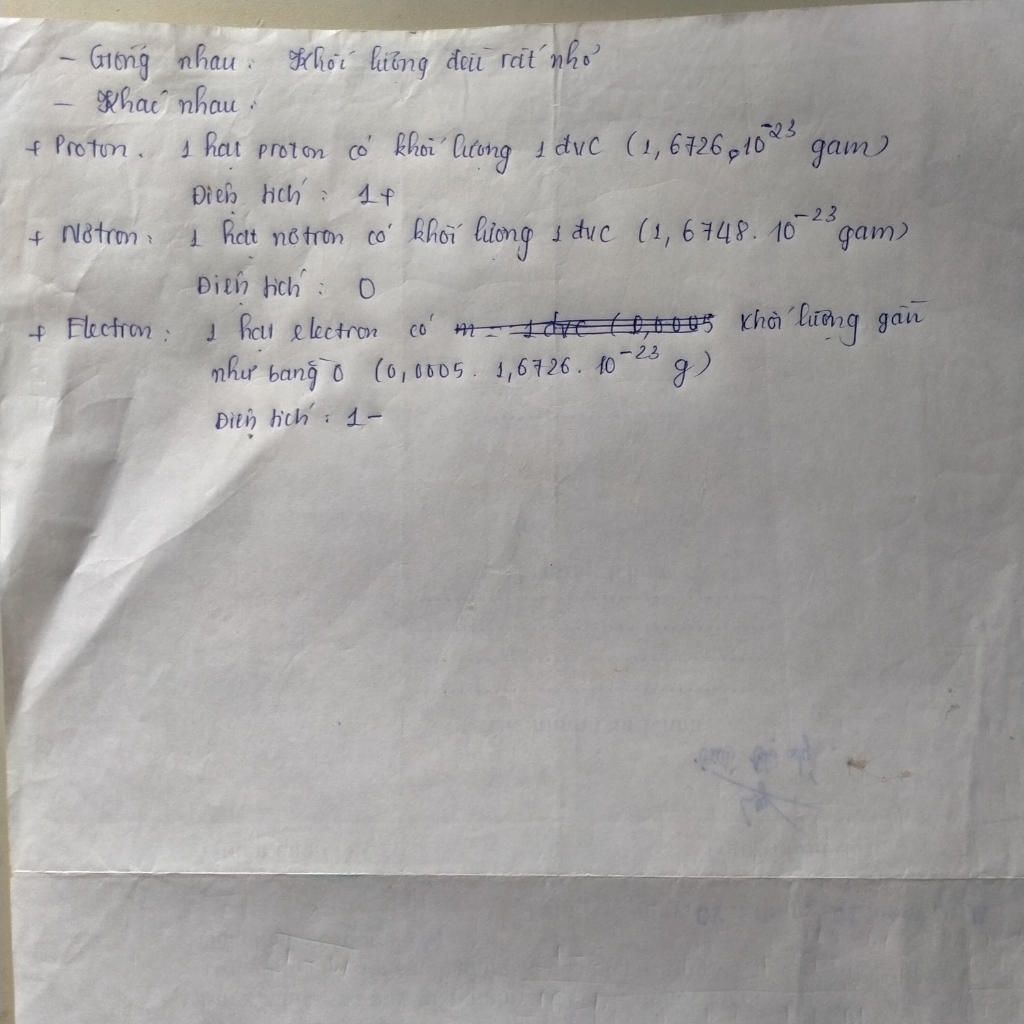 - Giống nhau: Khối lượng đều rất nhỏ
- Khác nhau:
+ Proton: 1 hạt proton có khối lượng 1 đvC (1,6726.10⁻²³ gam)
Điện tích: 1+
+ Nơtron: 1 hạt nơtron có khối lượng 1 đvC (1,6748.10⁻²³ gam)
Điện tích: 0
+ Electron: 1 hạt electron có m = 1 đvc (0,0005 khối lượng gần
như bằng 0 (0,0005. 1,6726.10⁻²³ g)
Điện tích: 1-